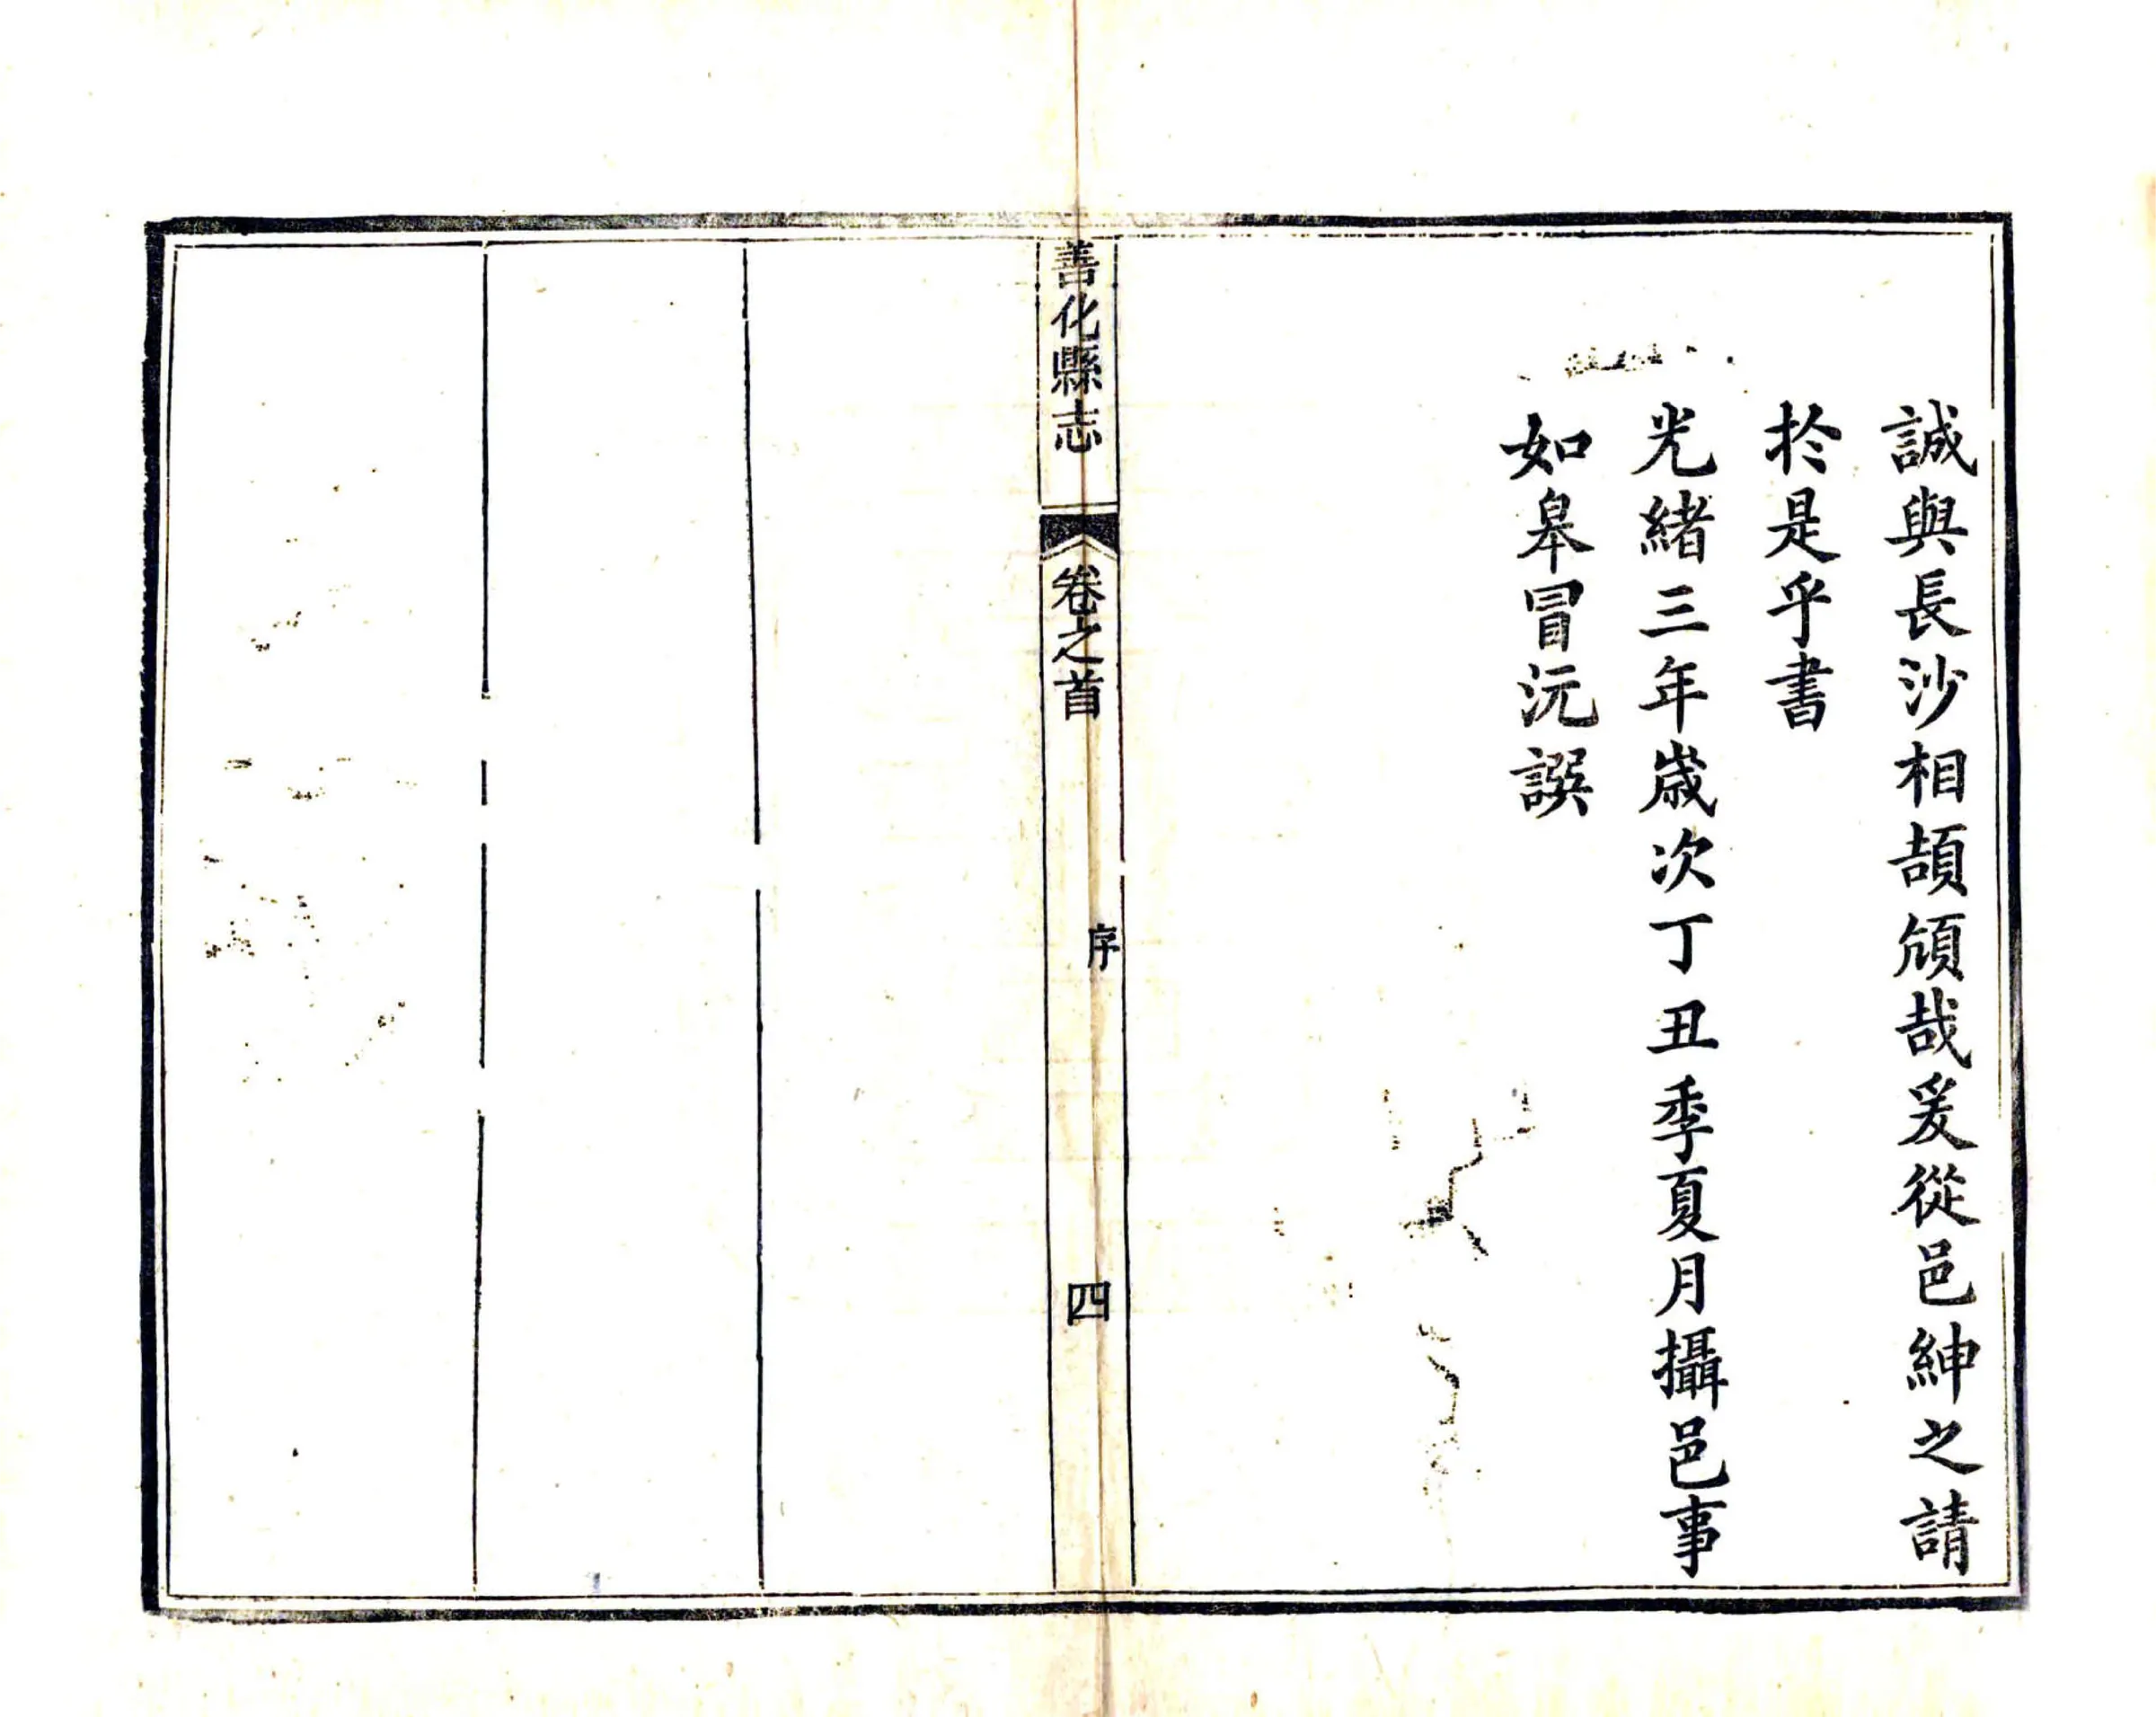 誠與長沙相頡頏哉爰從邑紳之請
於是乎書
光緒三年歲次丁丑季夏月攝邑事
如皋冒沅譔
善化縣志
卷之首
序
四